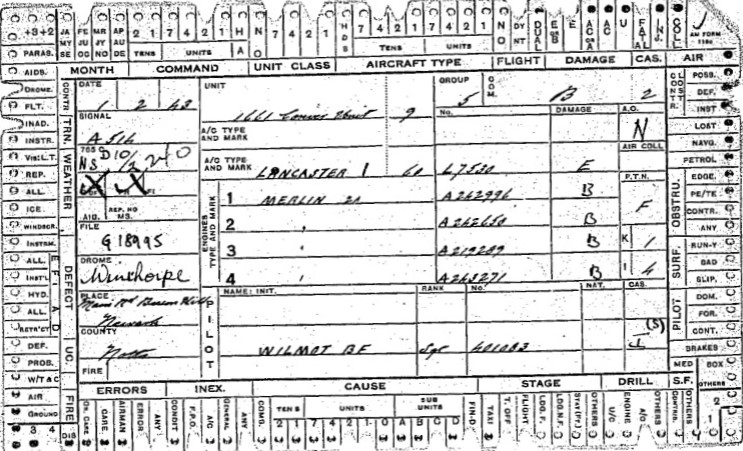 +3+2 JA MY SE FE JU OC MR JY NO AP AU DE 2 1 7 4 2 1 H A NO 7 4 2 1 HNDS 7 4 2 1 7 4 2 1 NO DY NT DUAL E E AC U FATAL INJ. COLL AM FORM
PARAS. TENS UNITS TENS UNITS
AIDS. MONTH COMMAND UNIT CLASS AIRCRAFT TYPE FLIGHT DAMAGE CAS. AIR
DROME.
FLT.
INAD.
INSTR.
VIS: L.T.
REP.
ALL.
ICE.
WINDSCR.
INSTRM.
ALL.
INST'L
HYD.
ALL.
RETR'CT
DEF.
PROB.
W/T & C
AIR
GROUND
3 4
CONTR TRN. WEATHER
DEFECT UC. FIRE
DATE
1 2 43
SIGNAL
A 516
765 C.
NS D10/2 240
AIB. REP. NO MS.
FILE
G18995
DROME
Winthorpe
PLACE
Main Rd Beacon Hill
Newark
COUNTY
Notts
FIRE
UNIT GROUP COM.
1661 Conver Unit 9 5 B 2
A/C TYPE AND MARK No. DAMAGE A.O.
N
A/C TYPE AND MARK AIR COLL
LANCASTER 1 60 L7530 E
ENGINES TYPE AND MARK P.T.N.
1 MERLIN 20 A242996 B F
2 " A242650 B
3 " A219289 B K 1
4 " A243271 B I 4
PILOT NAME: INIT. RANK No. NAT. CAS.
(S)
WILMOT BF Sgt 401083 1
CONTR. CLOST
POSS.
DEF.
INST
LOST
NAVG.
PETROL
OBSTRU. EDGE.
PE/TE
CONTR.
ANY
SURF. RUN-Y
BAD
SLIP.
PILOT. DOM.
FOR.
CONT.
BRAKES
MED BOX
OTHERS
ERRORS INEX. CAUSE STAGE DRILL S.F.
DIS OR. CARE. CARE. AIRMAN ERROR ANY CONDIT F.P.O. A/C GENERAL ANY COMG. TENS UNITS SUB UNITS FIN-D TAXI T. OFF FLIGHT LDG.F. LDG.N.F. STAT(F) OTHERS U/C ENGINE A/C OTHERS CONTROL OTHERS 2 1
2 1 7 4 2 1 0 A B C D